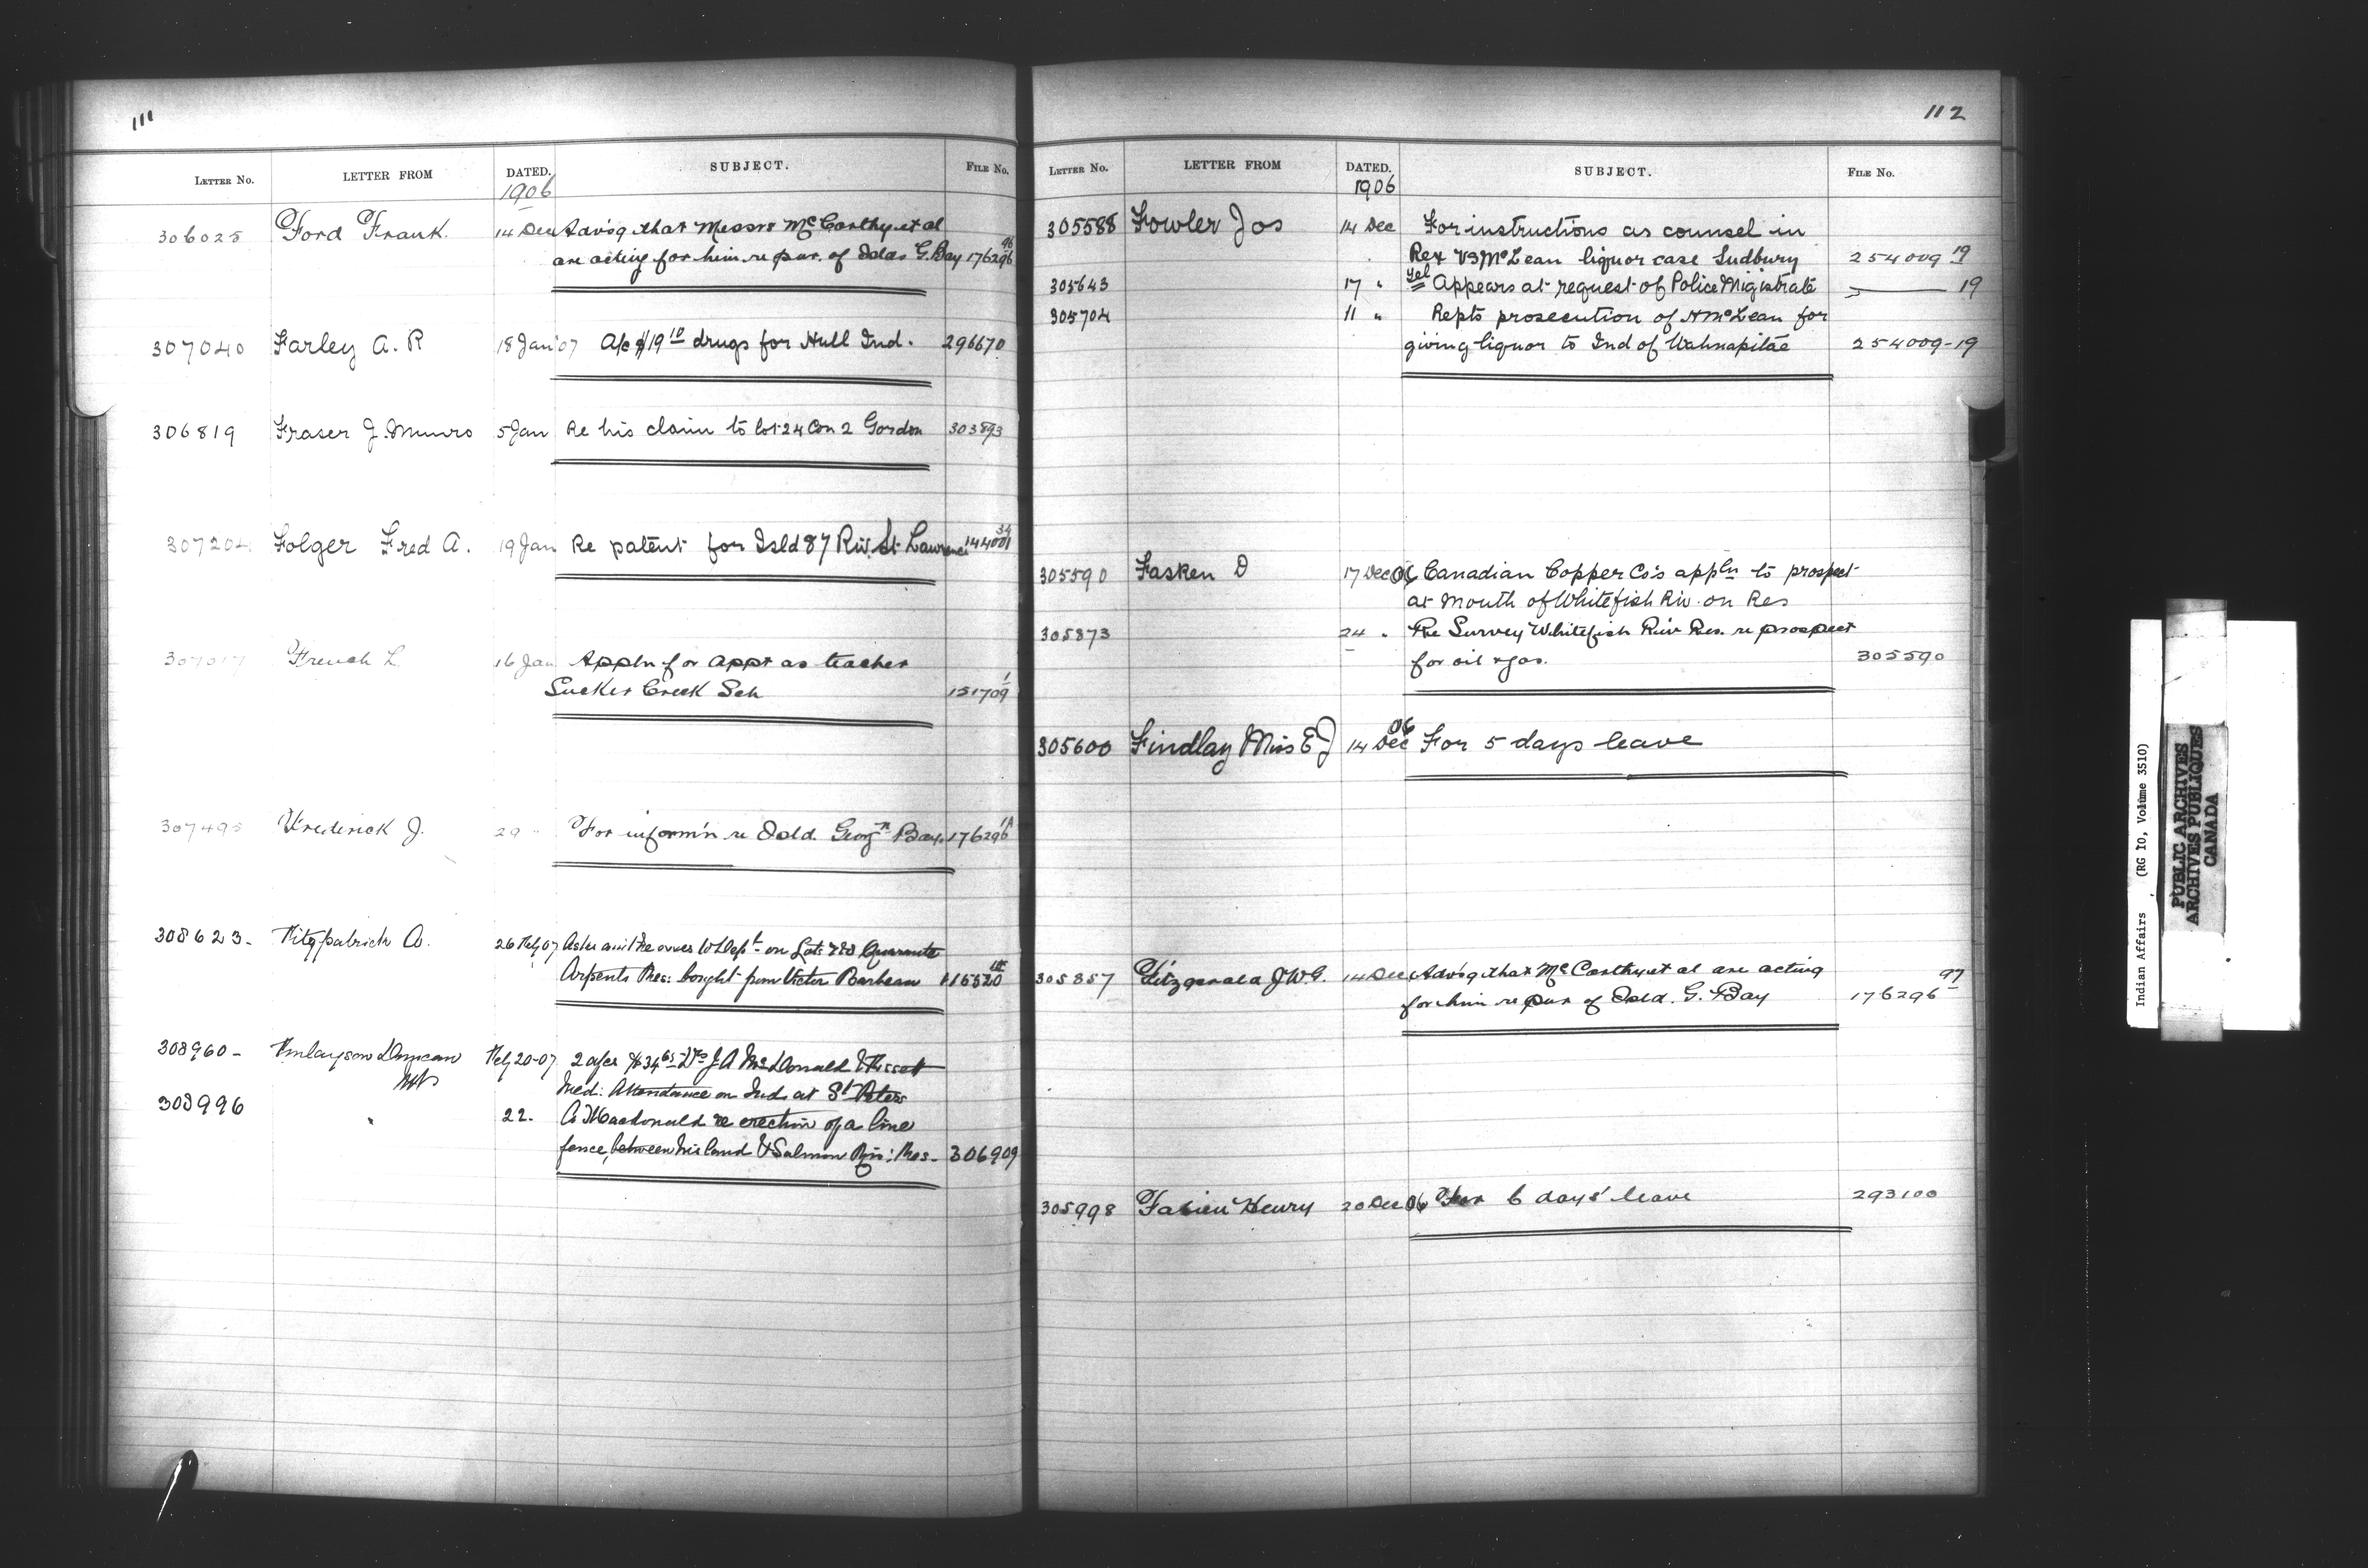 111
LETTER NO. LETTER FROM DATED. SUBJECT. FILE No.
1906
306025 Ford Frank. 14 Dec Advsg that Messrs McCarthy et al
are acting for him re pur. of Islds G. Bay 176296 96
307040 Farley A. R 18 Jan '07 A/c $19 10 drugs for Hull Ind. 296670
306819 Fraser J. Munro 5 Jan Re his claim to lot 24 Con 2 Gordon 303893
307204 Folger Fred A. 19 Jan Re patent for Isld 87 Riv. St Lawrence 144001 34
307017 French L 16 Jan Appln for appt as teacher
Sucker Creek Sch 151709 1
Frederick J. 29 " For inform'n re Isld. Georgn Bay. 176296
308623. Fitzpatrick A. 26 Feby 07 on Lots Quarante
Arpents Res: bought from Victor Barbeau
308960 - Finlayson Duncan Feby 20-07 2 a/cs J A McDonald & Bissett
MP Med: Attendance on Inds at St Peters
308996 " 22. A McDonald re erection of a line
fence, between his land & Salmon Riv: Res. 306909
112
LETTER NO. LETTER FROM DATED. SUBJECT. FILE No.
1906
305588 Fowler Jos 14 Dec For instructions as counsel in
Rex vs McLean liquor case Sudbury 254009 19
305643 17 " Tel Appears at request of Police Migistrate 19
305704 11 " Repts prosecution of H McLean for
giving liquor to Ind of Wahnapitae 254009-19
305590 Fasken D 17 Dec 06 Canadian Copper Co's appln to prospect
at mouth of Whitefish Riv. on Res
305873 24 " Re Survey Whitefish Riv Res. re prospect
for oil & gas. 305590
305600 Findlay Miss E J 14 Dec 06 For 5 days leave
305857 Fitzgerald J. W. G. 14 Dec Advsg that McCarthy et al are acting
for him re pur of Isld. G. Bay 176296 97
305998 Fabien Henry 20 Dec 06 For 6 days' leave 293100
Indian Affairs (RG 10, Volume 3510)
PUBLIC ARCHIVES
ARCHIVES PUBLIQUES
CANADA